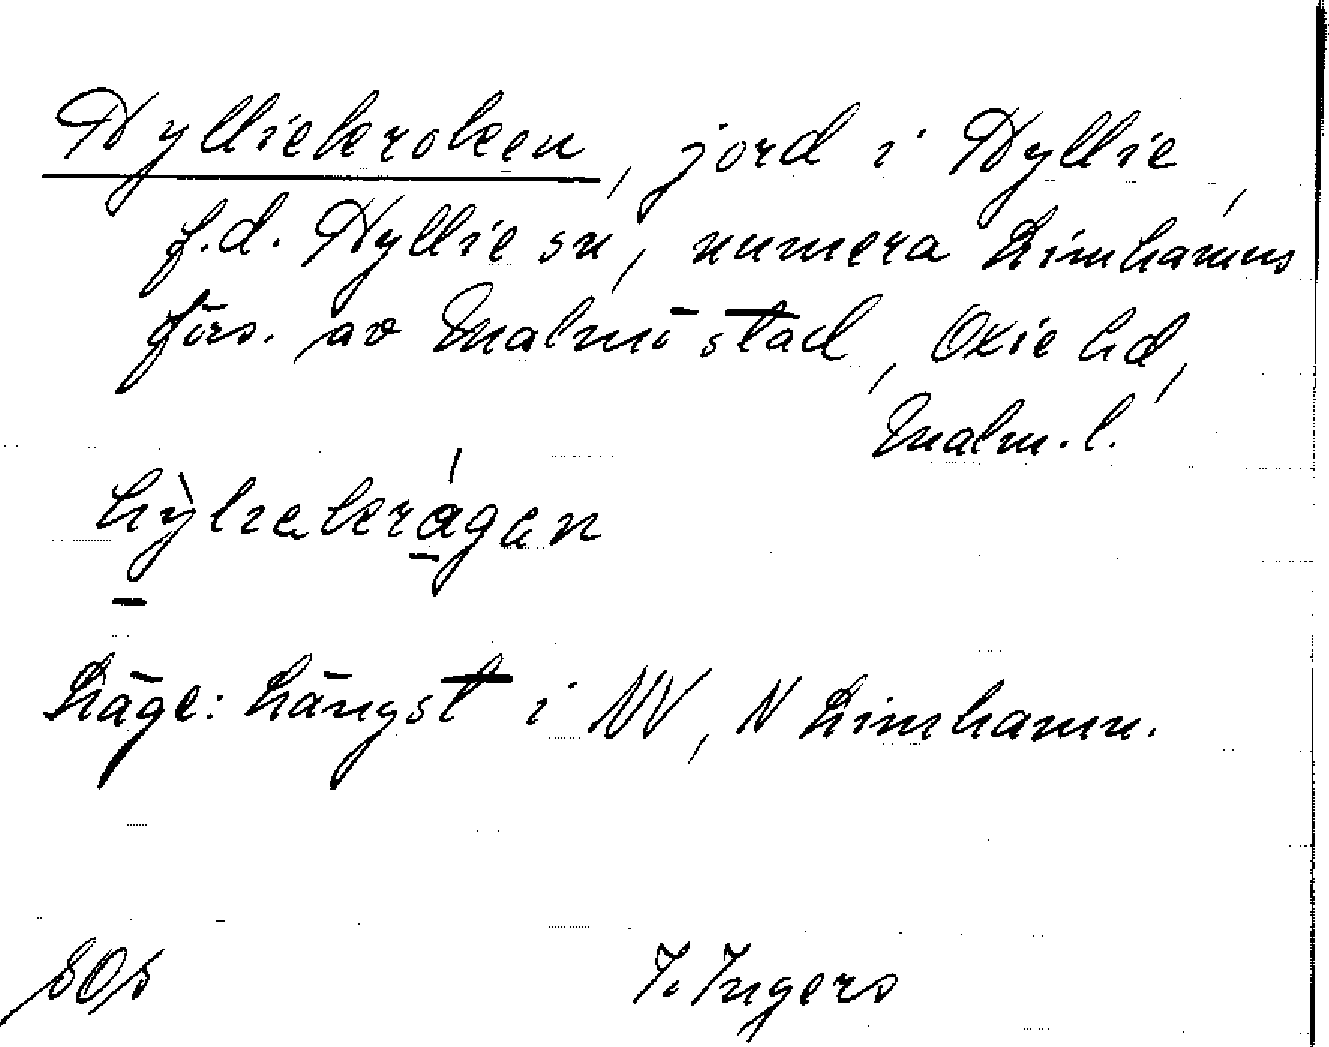 Hylliekroken, jord i Hyllie,
f.d. Hyllie sn, numera Limhamns
förs. av Malmö stad, Oxie hd,
Malm. l.
hỳliekrågen
Läge: Längst i NV, N Limhamn.
SOS I. Ingers